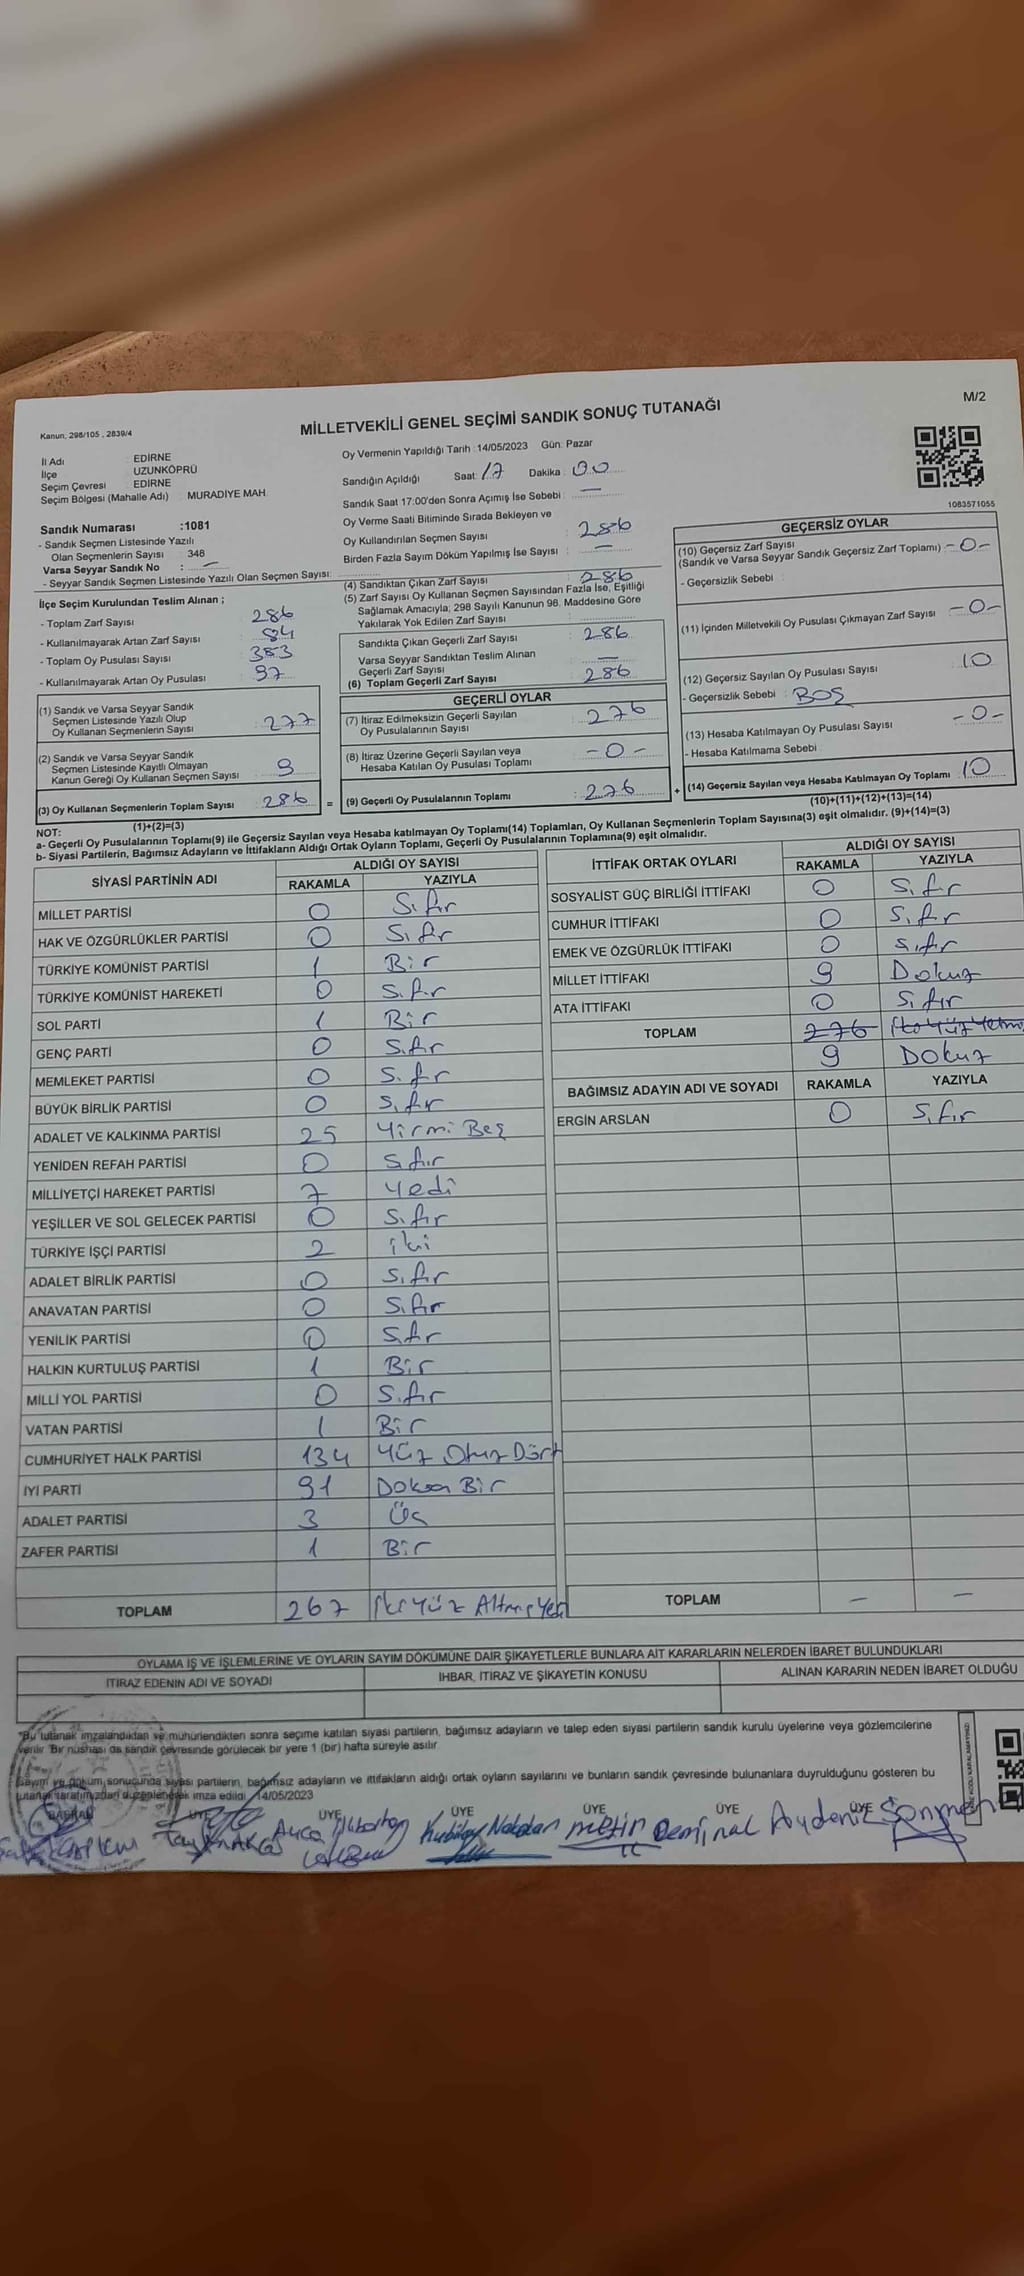 M/2
Kanun; 298/105 , 2839/4
MİLLETVEKİLİ GENEL SEÇİMİ SANDIK SONUÇ TUTANAĞI
İl Adı : EDIRNE
İlçe UZUNKÖPRÜ
Seçim Çevresi : EDIRNE
Seçim Bölgesi (Mahalle Adı) : MURADIYE MAH.
Sandık Numarası :1081
- Sandık Seçmen Listesinde Yazılı
Olan Seçmenlerin Sayısı : 348
Varsa Seyyar Sandık No : —
- Seyyar Sandık Seçmen Listesinde Yazılı Olan Seçmen Sayısı:
Oy Vermenin Yapıldığı Tarih :14/05/2023 Gün: Pazar
Sandığın Açıldığı Saat: 17 Dakika : 00
Sandık Saat 17:00'den Sonra Açımış İse Sebebi : —
Oy Verme Saati Bitiminde Sırada Bekleyen ve
Oy Kullandırılan Seçmen Sayısı : 286
Birden Fazla Sayım Döküm Yapılmış İse Sayısı : —
1083571055
İlçe Seçim Kurulundan Teslim Alınan ;
- Toplam Zarf Sayısı : 286
- Kullanılmayarak Artan Zarf Sayısı : 84
- Toplam Oy Pusulası Sayısı : 383
- Kullanılmayarak Artan Oy Pusulası : 97
(1) Sandık ve Varsa Seyyar Sandık
Seçmen Listesinde Yazılı Olup
Oy Kullanan Seçmenlerin Sayısı : 277
(2) Sandık ve Varsa Seyyar Sandık
Seçmen Listesinde Kayıtlı Olmayan
Kanun Gereği Oy Kullanan Seçmen Sayısı : 9
(3) Oy Kullanan Seçmenlerin Toplam Sayısı : 286 =
(1)+(2)=(3)
(4) Sandıktan Çıkan Zarf Sayısı : 286
(5) Zarf Sayısı Oy Kullanan Seçmen Sayısından Fazla İse, Eşitliği
Sağlamak Amacıyla; 298 Sayılı Kanunun 98. Maddesine Göre
Yakılarak Yok Edilen Zarf Sayısı :
Sandıkta Çıkan Geçerli Zarf Sayısı : 286
Varsa Seyyar Sandıktan Teslim Alınan
Geçerli Zarf Sayısı : —
(6) Toplam Geçerli Zarf Sayısı : 286
GEÇERLİ OYLAR
(7) İtiraz Edilmeksizin Geçerli Sayılan
Oy Pusulalarının Sayısı : 276
(8) İtiraz Üzerine Geçerli Sayılan veya
Hesaba Katılan Oy Pusulası Toplamı : -0-
(9) Geçerli Oy Pusulalarının Toplamı : 276 +
GEÇERSİZ OYLAR
(10) Geçersiz Zarf Sayısı
(Sandık ve Varsa Seyyar Sandık Geçersiz Zarf Toplamı) -0-
- Geçersizlik Sebebi :
(11) İçinden Milletvekili Oy Pusulası Çıkmayan Zarf Sayısı -0-
(12) Geçersiz Sayılan Oy Pusulası Sayısı 10
- Geçersizlik Sebebi : BOŞ
(13) Hesaba Katılmayan Oy Pusulası Sayısı -0-
- Hesaba Katılmama Sebebi
(14) Geçersiz Sayılan veya Hesaba Katılmayan Oy Toplamı : 10
(10)+(11)+(12)+(13)=(14)
NOT:
a- Geçerli Oy Pusulalarının Toplamı(9) ile Geçersiz Sayılan veya Hesaba katılmayan Oy Toplamı(14) Toplamları, Oy Kullanan Seçmenlerin Toplam Sayısına(3) eşit olmalıdır. (9)+(14)=(3)
b- Siyasi Partilerin, Bağımsız Adayların ve İttifakların Aldığı Ortak Oyların Toplamı, Geçerli Oy Pusulalarının Toplamına(9) eşit olmalıdır.
SİYASİ PARTİNİN ADI ALDIĞI OY SAYISI
RAKAMLA YAZIYLA
MİLLET PARTİSİ 0 Sıfır
HAK VE ÖZGÜRLÜKLER PARTİSİ 0 Sıfır
TÜRKİYE KOMÜNİST PARTİSİ 1 Bir
TÜRKİYE KOMÜNİST HAREKETİ 0 Sıfır
SOL PARTİ 1 Bir
GENÇ PARTİ 0 Sıfır
MEMLEKET PARTİSİ 0 Sıfır
BÜYÜK BİRLİK PARTİSİ 0 Sıfır
ADALET VE KALKINMA PARTİSİ 25 Yirmi Beş
YENİDEN REFAH PARTİSİ 0 Sıfır
MİLLİYETÇİ HAREKET PARTİSİ 7 Yedi
YEŞİLLER VE SOL GELECEK PARTİSİ 0 Sıfır
TÜRKİYE İŞÇİ PARTİSİ 2 iki
ADALET BİRLİK PARTİSİ 0 Sıfır
ANAVATAN PARTİSİ 0 Sıfır
YENİLİK PARTİSİ 0 Sıfır
HALKIN KURTULUŞ PARTİSİ 1 Bir
MİLLİ YOL PARTİSİ 0 Sıfır
VATAN PARTİSİ 1 Bir
CUMHURİYET HALK PARTİSİ 134 Yüz Otuz Dört
İYİ PARTİ 91 Doksan Bir
ADALET PARTİSİ 3 Üç
ZAFER PARTİSİ 1 Bir
TOPLAM 267 İkiyüz Altmış Yedi
İTTİFAK ORTAK OYLARI ALDIĞI OY SAYISI
RAKAMLA YAZIYLA
SOSYALİST GÜÇ BİRLİĞİ İTTİFAKI 0 Sıfır
CUMHUR İTTİFAKI 0 Sıfır
EMEK VE ÖZGÜRLÜK İTTİFAKI 0 Sıfır
MİLLET İTTİFAKI 9 Dokuz
ATA İTTİFAKI 0 Sıfır
TOPLAM 276
9 Dokuz
BAĞIMSIZ ADAYIN ADI VE SOYADI RAKAMLA YAZIYLA
ERGİN ARSLAN 0 Sıfır
TOPLAM — —
OYLAMA İŞ VE İŞLEMLERİNE VE OYLARIN SAYIM DÖKÜMÜNE DAİR ŞİKAYETLERLE BUNLARA AİT KARARLARIN NELERDEN İBARET BULUNDUKLARI
İTİRAZ EDENİN ADI VE SOYADI İHBAR, İTİRAZ VE ŞİKAYETİN KONUSU ALINAN KARARIN NEDEN İBARET OLDUĞU
*Bu tutanak imzalandıktan ve mühürlendikten sonra seçime katılan siyasi partilerin, bağımsız adayların ve talep eden siyasi partilerin sandık kurulu üyelerine veya gözlemcilerine
verilir. Bir nüshası da sandık çevresinde görülecek bir yere 1 (bir) hafta süreyle asılır
Sayım ve döküm sonucunda siyasi partilerin, bağımsız adayların ve ittifakların aldığı ortak oyların sayılarını ve bunların sandık çevresinde bulunanlara duyrulduğunu gösteren bu
tutanak tarafımızdan düzenlenerek imza edildi. 14/05/2023
BAŞKAN ÜYE ÜYE ÜYE ÜYE ÜYE ÜYE
metin Aydeniz Sönmen